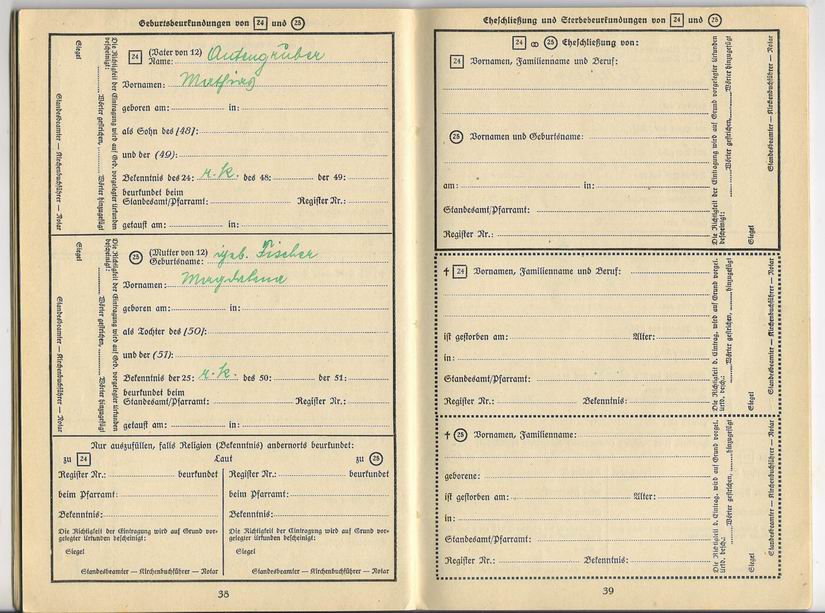 Geburtsbeurkundungen von 24 und 25
24 (Vater von 12)
Name: Antengruber
Vornamen: Mathias
geboren am: in:
als Sohn des [48]:
und der (49):
Bekenntnis des 24: r. k. des 48: der 49:
beurkundet beim
Standesamt/Pfarramt: Register Nr.:
getauft am: in:
Die Richtigkeit der Eintragung wird auf Grd. vorgelegter Urkunden
bescheinigt: Wörter gestrichen, Wörter hinzugefügt
Siegel
Standesbeamter — Kirchenbuchführer — Notar
25 (Mutter von 12)
Geburtsname: geb. Fischer
Vornamen: Magdalena
geboren am: in:
als Tochter des [50]:
und der (51):
Bekenntnis der 25: r. k. des 50: der 51:
beurkundet beim
Standesamt/Pfarramt: Register Nr.:
getauft am: in:
Die Richtigkeit der Eintragung wird auf Grd. vorgelegter Urkunden
bescheinigt: Wörter gestrichen, Wörter hinzugefügt
Siegel
Standesbeamter — Kirchenbuchführer — Notar
Nur auszufüllen, falls Religion (Bekenntnis) andernorts beurkundet:
zu 24 Laut zu 25
Register Nr.: beurkundet
beim Pfarramt:
Bekenntnis:
Die Richtigkeit der Eintragung wird auf Grund vor-
gelegter Urkunden bescheinigt:
Siegel
Standesbeamter — Kirchenbuchführer — Notar
Register Nr.: beurkundet
beim Pfarramt:
Bekenntnis:
Die Richtigkeit der Eintragung wird auf Grund vor-
gelegter Urkunden bescheinigt:
Siegel
Standesbeamter — Kirchenbuchführer — Notar
38
Eheschließung und Sterbebeurkundungen von 24 und 25
24 ⚭ 25 Eheschließung von:
24 Vornamen, Familienname und Beruf:
25 Vornamen und Geburtsname:
am: in:
Standesamt/Pfarramt:
Register Nr.:
Die Richtigkeit der Eintragung wird auf Grund vorgelegter Urkunden
bescheinigt: Wörter gestrichen, Wörter hinzugefügt
Siegel
Standesbeamter — Kirchenbuchführer — Notar
† 24 Vornamen, Familienname und Beruf:
ist gestorben am: Alter:
in:
Standesamt/Pfarramt:
Register Nr.: Bekenntnis:
Die Richtigkeit d. Eintrag. wird auf Grund vorgel.
Urkd. besch.: Wörter gestrichen, hinzugefügt
Siegel
Standesbeamter — Kirchenbuchführer — Notar
† 25 Vornamen, Familienname:
geborene:
ist gestorben am: Alter:
in:
Standesamt/Pfarramt:
Register Nr.: Bekenntnis:
Die Richtigkeit d. Eintrag. wird auf Grund vorgel.
Urkd. besch.: Wörter gestrichen, hinzugefügt
Siegel
Standesbeamter — Kirchenbuchführer — Notar
39